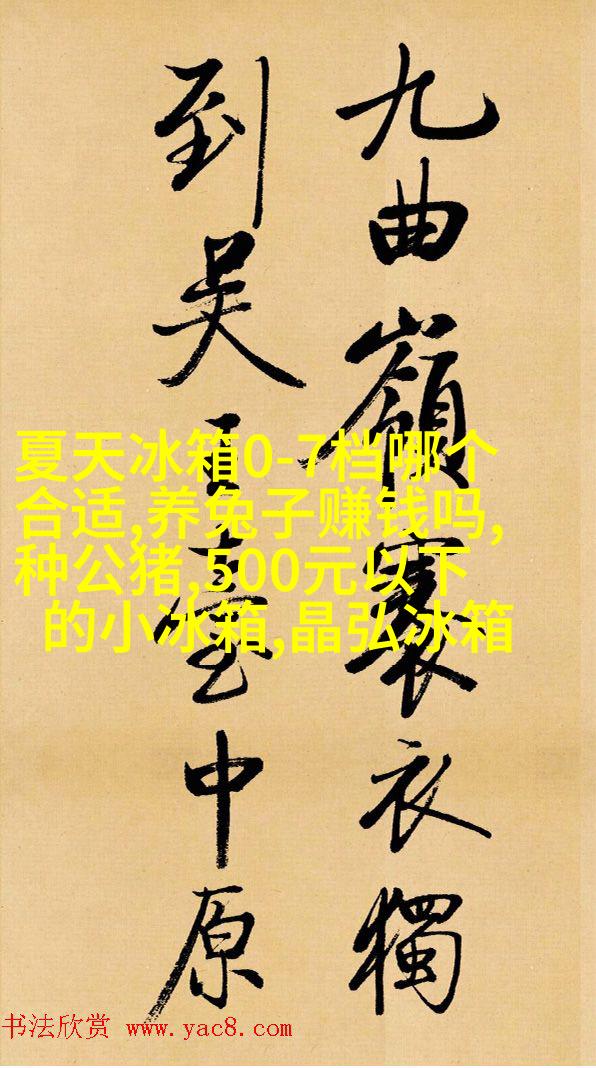 九曲嶺褰衣獨
到吴王臺中原
夏天冰箱0-7档哪个
合适,养兔子赚钱吗,
种公猪,500元以下
的小冰箱,晶弘冰箱
书法欣赏 www.yac8.com